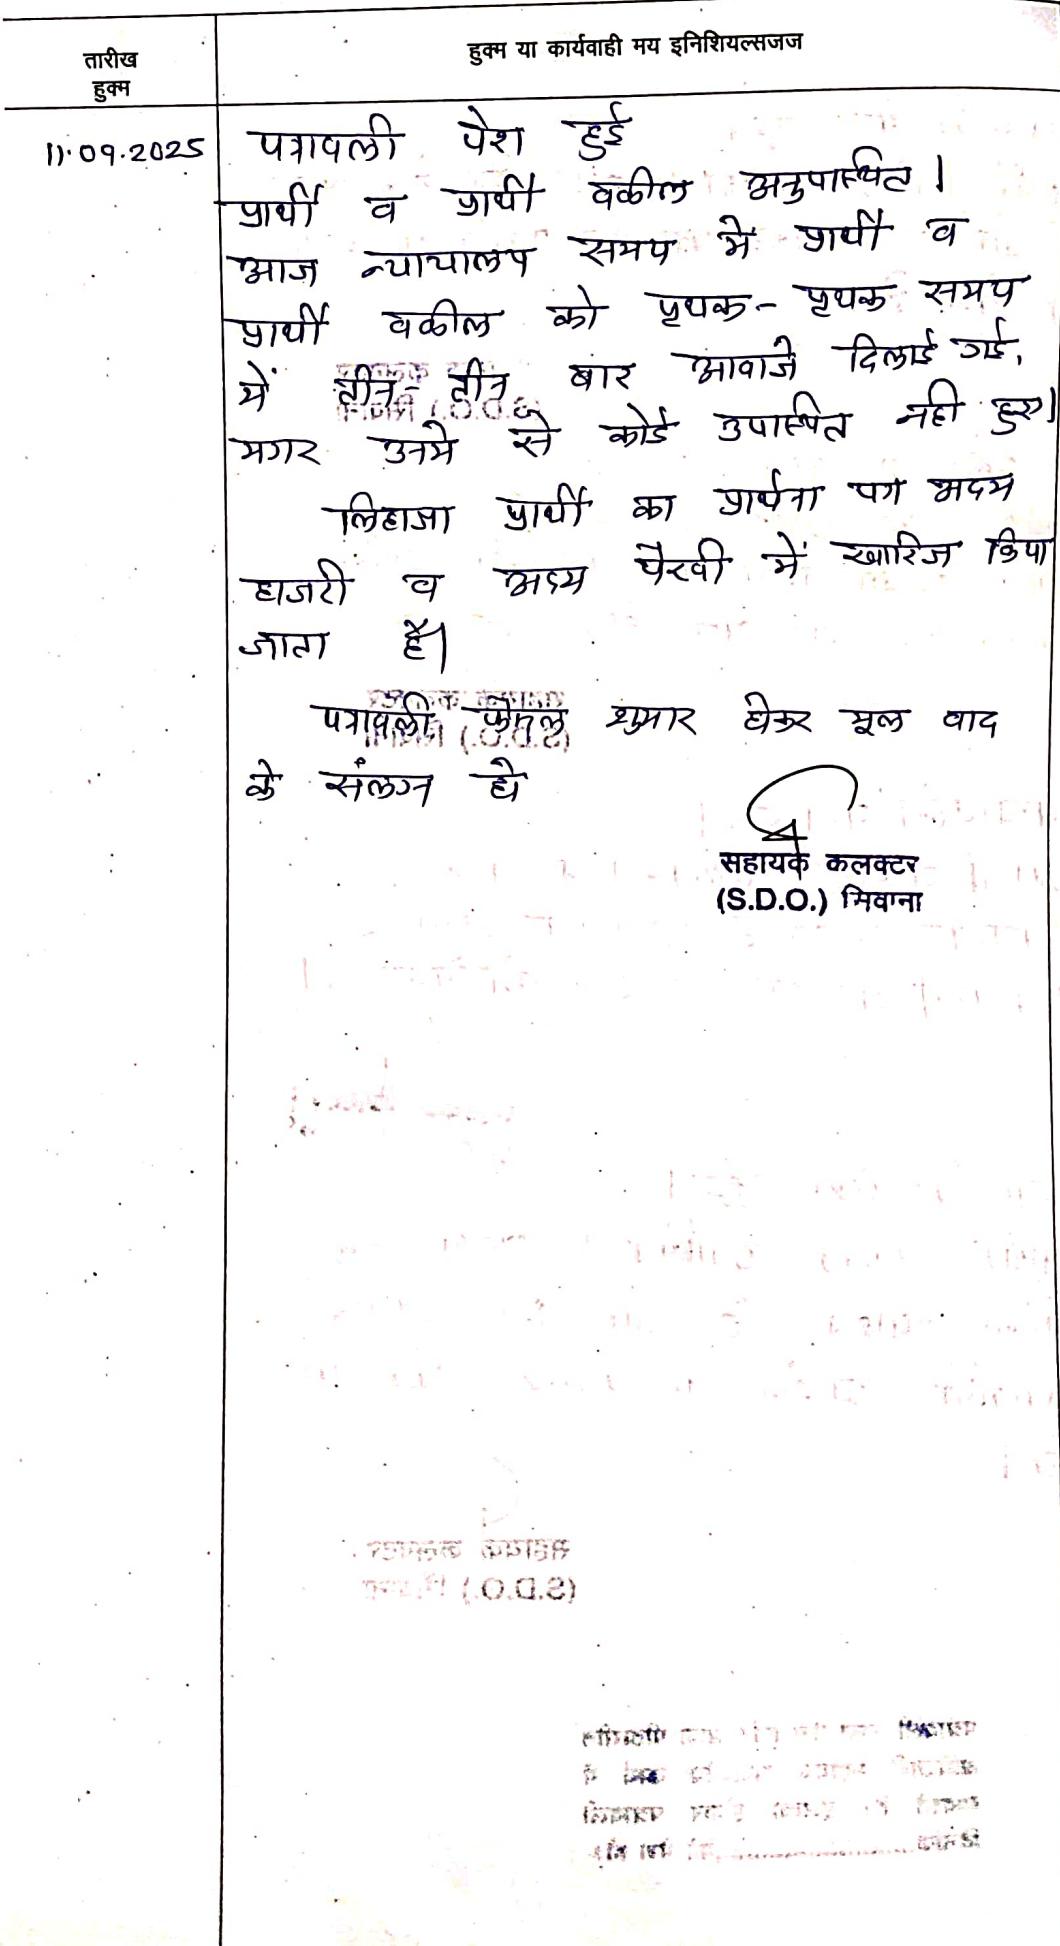 तारीख
हुक्म
हुक्म या कार्यवाही मय इनिशियल्सजज
11.09.2025
पत्रावली पेश हुई
प्रार्थी व प्रार्थी वकील अनुपास्थित।
आज न्यायालय समय में प्रार्थी व
प्रार्थी वकील को पृथक- पृथक समय
में तीन- तीन बार आवाजे दिलाई गई,
मगर उनमे से कोई उपास्थित नही हुए।
लिहाजा प्रार्थी का प्रार्थना पत्र अदम
हाजरी व अदम पैरवी में खारिज किया
जाता है।
पत्रावली फैसल शुमार होकर मूल वाद
के संलग्न हो
सहायक कलक्टर
(S.D.O.) सिवाना
सहायक कलक्टर
(S.D.O.)